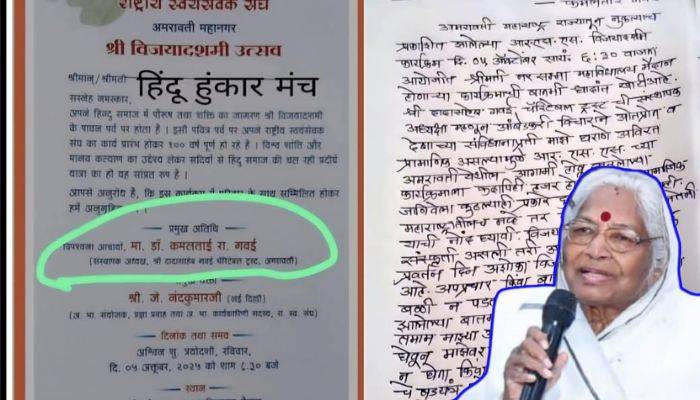 राष्ट्रीय स्वयंसेवक संघ
अमरावती महानगर
श्री विजयादशमी उत्सव
श्रीमान्/श्रीमती हिंदू हुंकार मंच
सस्नेह नमस्कार,
अपने हिन्दू समाज में पौरुष तथा शक्ति का जागरण श्री विजयादशमी
के पावन पर्व पर होता है । इसी पवित्र पर्व पर अपने राष्ट्रीय स्वयंसेवक
संघ का कार्य प्रारंभ होकर १०० वर्ष पूर्ण हो रहे है । विश्व शांति और
मानव कल्याण का उद्देश्य लेकर सदियों से हिंदू समाज की चल रही प्रदीर्घ
यात्रा का हो यह सांप्रत रुप है ।
आपसे अनुरोध है, कि इस कार्यक्रम में परिवार के साथ सम्मिलित होकर
हमें अनुगृहित
प्रमुख अतिथि
विपश्यना आचार्या, मा. डॉ. कमलताई रा. गवई
(संस्थापक अध्यक्षा, श्री दादासाहेब गवई चॅरिटेबल ट्रस्ट, अमरावती)
श्री. जे. नंदकुमारजी (नई दिल्ली)
(अ. भा. संयोजक, प्रज्ञा प्रवाह तथा अ. भा. कार्यकारिणी सदस्य, रा. स्व. संघ)
दिनांक तथा समय
अश्विन शु. त्रयोदशी, रविवार,
दि. ०५ अक्तूबर, २०२५ को शाम ६.३० बजे
स्थान
अमरावती महाराष्ट्र राज्यातून नुकत्याच
प्रकाशित झालेल्या आर.एस.एस. विजयादशमी
कार्यक्रम दि. ०५ ऑक्टोबर सायं. ६:३० वाजता
आयोजीत श्रीमती नरसम्मा महाविद्यालय मैदान
होणाऱ्या कार्यक्रमाची बातमी खोटी आहे.
श्री दादासाहेब गवई चॅरिटेबल ट्रस्ट ची संस्थापक
अध्यक्षा म्हणून आंबेडकरी विचाराने ओतप्रोत व
देशाच्या संविधानाप्रती माझे घराणे अविरत
प्रामाणिक असल्यामुळे आर. एस. एस. च्या
अमरावती येथील आगामी होवू घातलेल्या
कार्यक्रमाला कदापिही हजर
कुठल्याही प्रकार
तर
याची नोंद घ्यावी. विजय
संस्कृती असली तरी
प्रवर्तन दिन अशोका विजय
आहे. अपप्रचार किंवा
बळी न पड
झालेल्या बातमी
तमाम माझ्या
घेवून माझेवर
न घेता किंवा